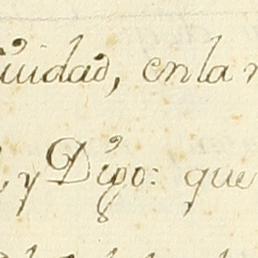 uidad, en la
, y Digo: que